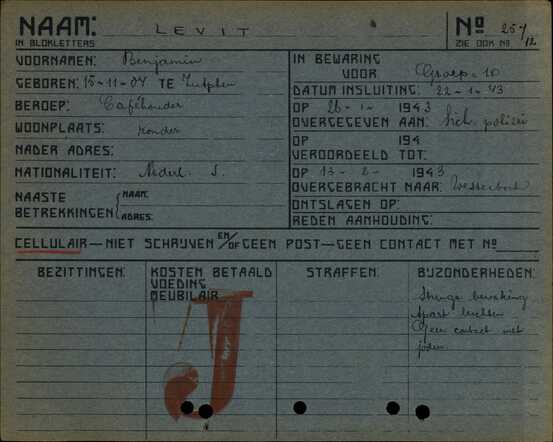 NAAM: LEVIT
IN BLOKLETTERS
Nº 257/12
ZIE OOK Nº
VOORNAMEN: Benjamin
GEBOREN: 15-11-04 TE Zutphen
BEROEP: Caféhouder
WOONPLAATS: zonder
NADER ADRES:
NATIONALITEIT: Nederl. I.
NAASTE BETREKKINGEN
NAAM:
ADRES:
IN BEWARING
VOOR Groep 10
DATUM INSLUITING: 22-1-43
OP 26-1-1943
OVERGEGEVEN AAN: Sich. polizei
OP 194
VEROORDEELD TOT:
OP 13-2-1943
OVERGEBRACHT NAAR: Westerbork
ONTSLAGEN OP:
REDEN AANHOUDING:
CELLULAIR—NIET SCHRIJVEN EN/OF GEEN POST—GEEN CONTACT MET Nº
BEZITTINGEN:
KOSTEN BETAALD
VOEDING
MEUBILAIR
STRAFFEN:
BIJZONDERHEDEN:
J
Strenge bewaking
Apart luchten
Geen contact met
joden